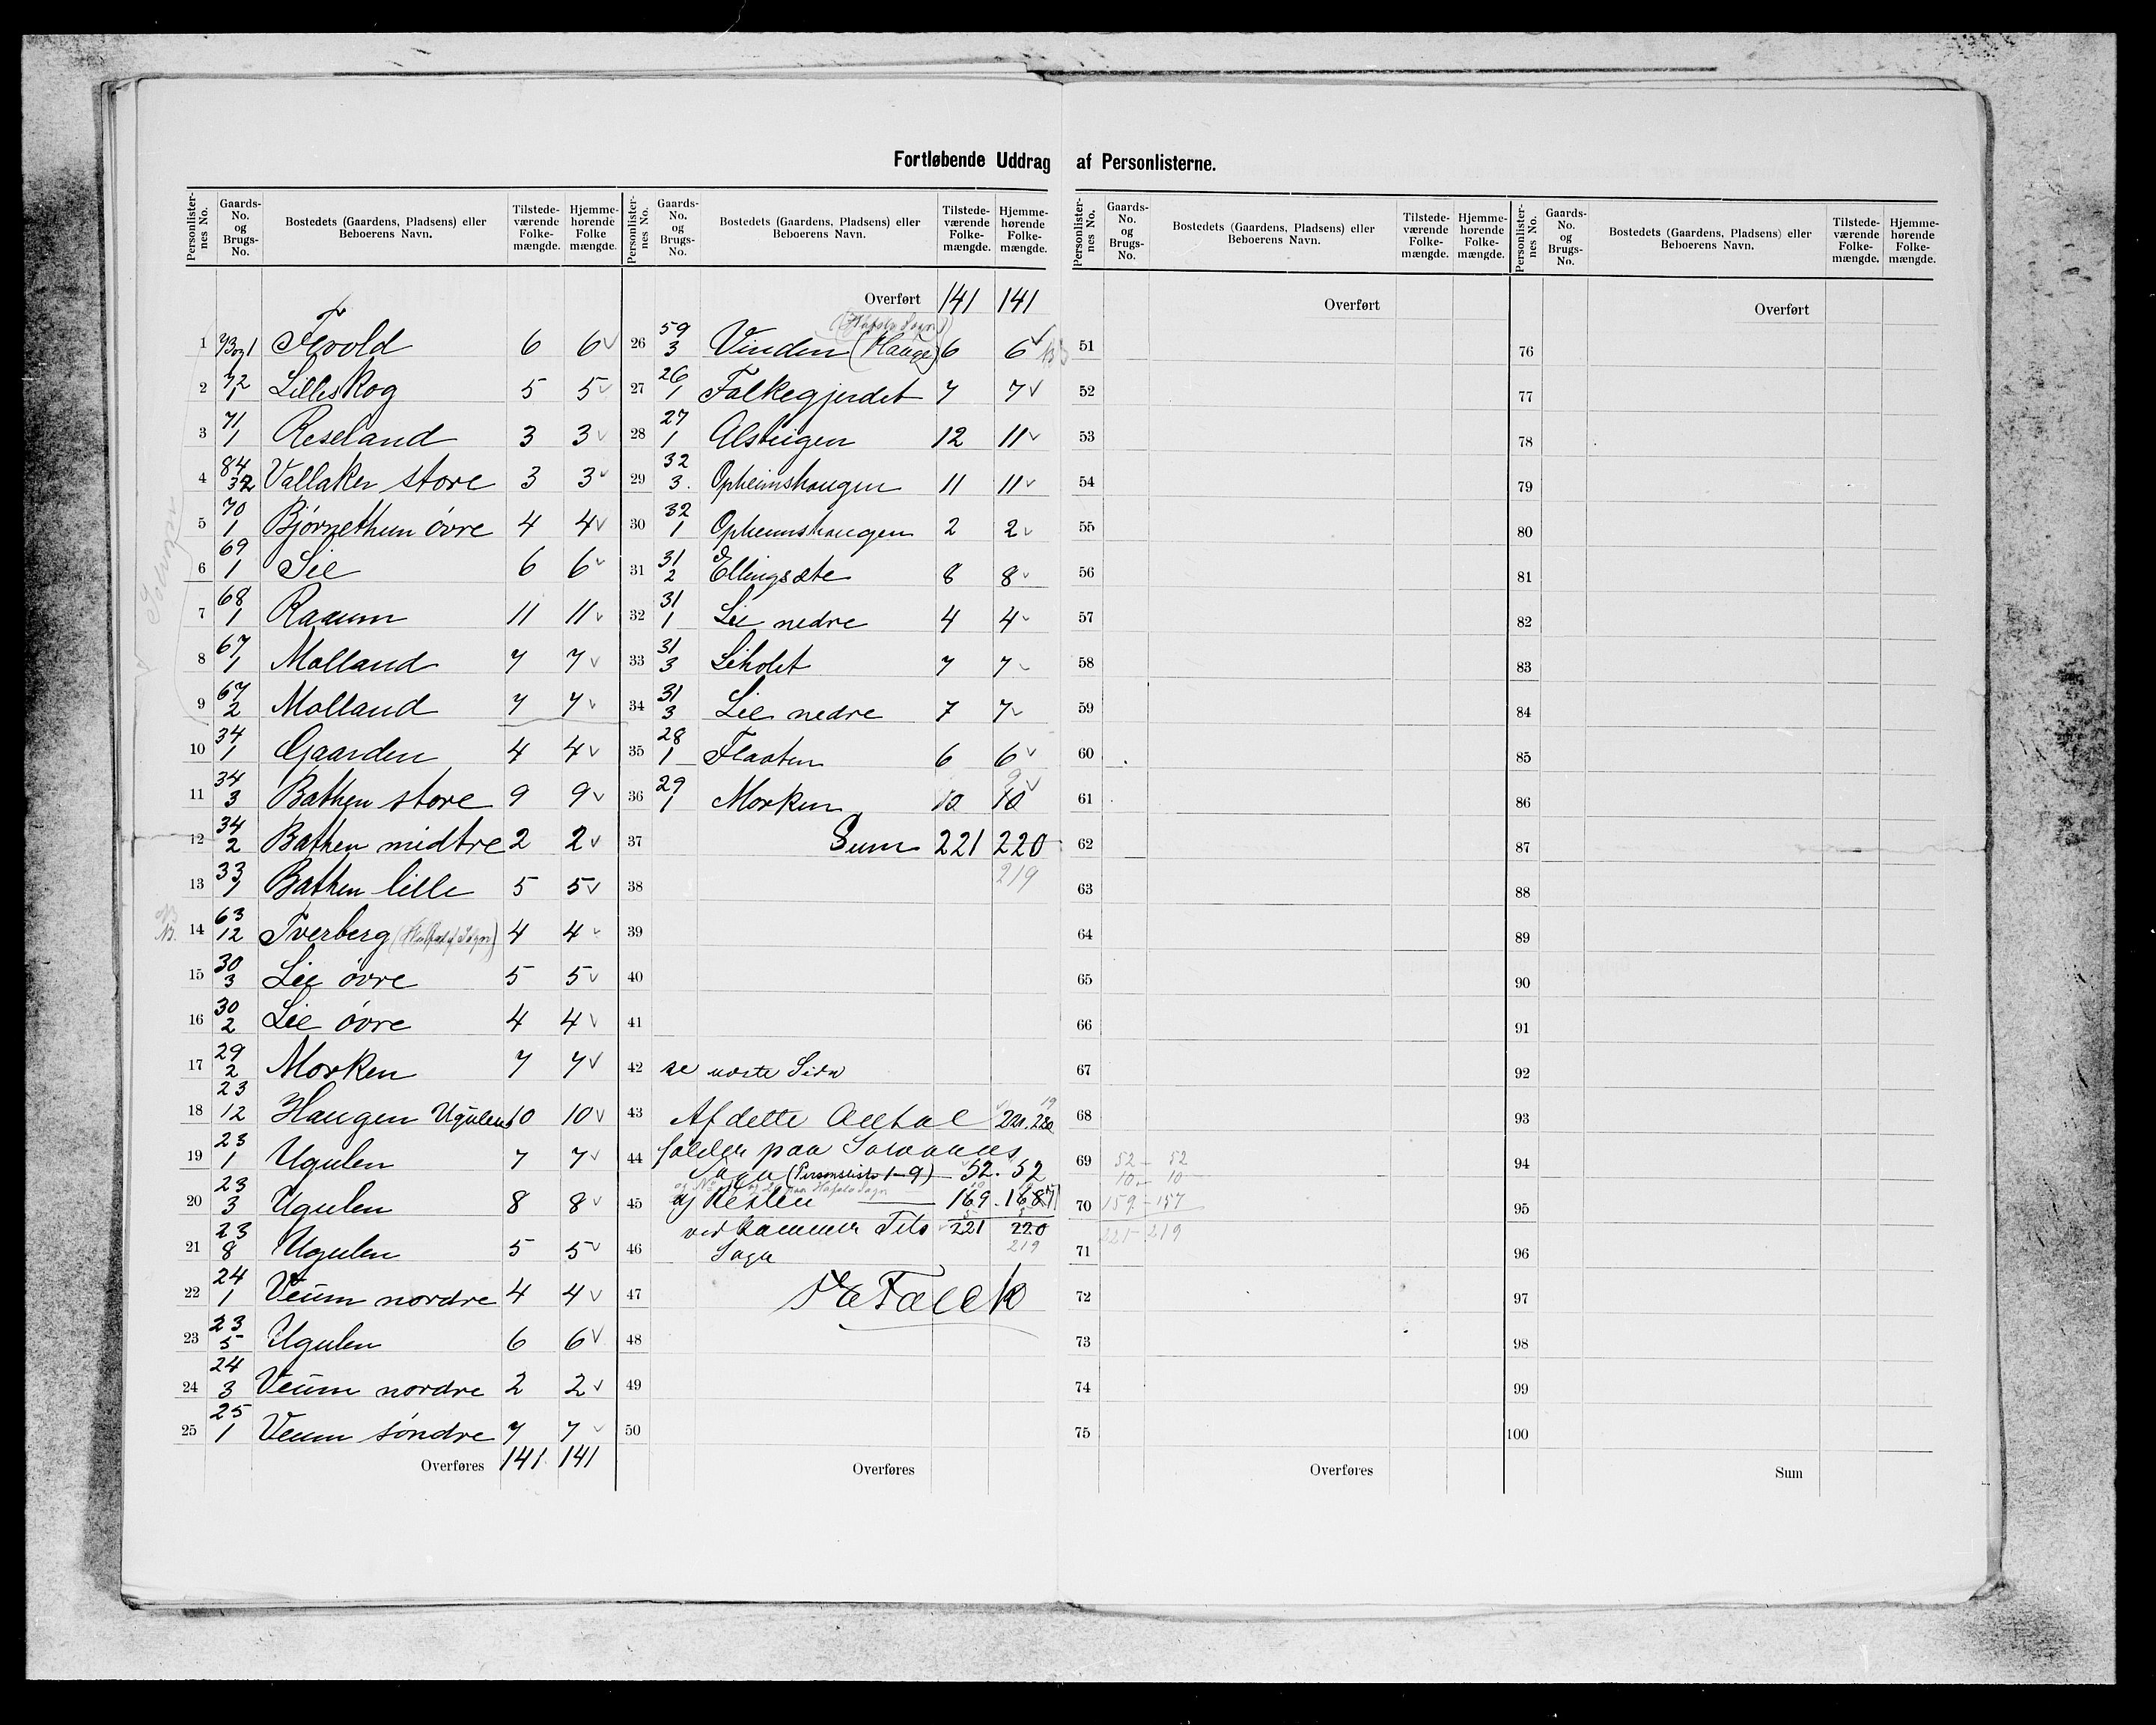 Fortløbende Uddrag af Personlisterne.
Personlisternes No. Gaards-No. og Brugs-No. Bostedets (Gaardens, Pladsens) eller Beboerens Navn. Tilstedeværende Folkemængde. Hjemmehørende Folkemængde.
1 Fevold 6 6
2 72/1 Lilleskog 5 5
3 71/1 Reseland 3 3
4 84 Vallaker store 3 3
5 70/1 Bjørnethun övre 4 4
6 69/1 Lie 6 6
7 68/1 Raaum 11 11
8 67/1 Molland 7 7
9 67/2 Molland 7 7
10 34/1 Gaarden 4 4
11 34/3 Bathen store 9 9
12 34/2 Bathen midtre 2 2
13 33/1 Bathen lille 5 5
14 63/12 Tverberg 4 4
15 30/3 Lie övre 5 5
16 30/2 Lie övre 4 4
17 29/2 Morken 7 7
18 23/12 Haugen Ugulen 10 10
19 23/1 Ugulen 7 7
20 23/3 Ugulen 8 8
21 23/8 Ugulen 5 5
22 24/1 Veum nordre 4 4
23 23/5 Ugulen 6 6
24 24/3 Veum nordre 2 2
25 25/1 Veum söndre 7 7
Overføres 141 141
Overført 141 141
(Hafslo Sogn)
26 59/3 Vinden (Hauge) 6 6
27 26/1 Falkegjerdet 7 7
28 27/1 Alsteigen 12 11
29 32/3 Opheimshaugen 11 11
30 32/1 Opheimshaugen 2 2
31 31/2 Ellingsæte 8 8
32 31/1 Lie nedre 4 4
33 31/3 Liholet 7 7
34 31/3 Lie nedre 7 7
35 28/1 Flaaten 6 6
9
36 29/1 Morken 10 10
37 Sum 221 220
38 219
39
40
41
42 se næste Side
43 Af dette Antal 221. 220
44 falder paa Solvorns
Sogn (Personliste 1-9) 52. 52
45 og Resten 169. 168
46 ved kommer Fets 221 220
Sogn 219
47 Falck
48
49
50
Overføres
Overført
51
52
53
54
55
56
57
58
59
60
61
62
63
64
65
66
67
68
69 52 - 52
10 - 10
70 159 - 157
71 221 219
72
73
74
75
Overføres
Overført
76
77
78
79
80
81
82
83
84
85
86
87
88
89
90
91
92
93
94
95
96
97
98
99
100
Sum